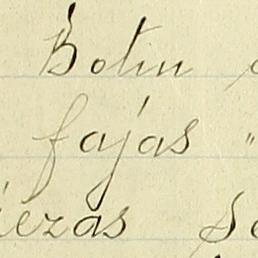 Botin
fajas "
iezas Se